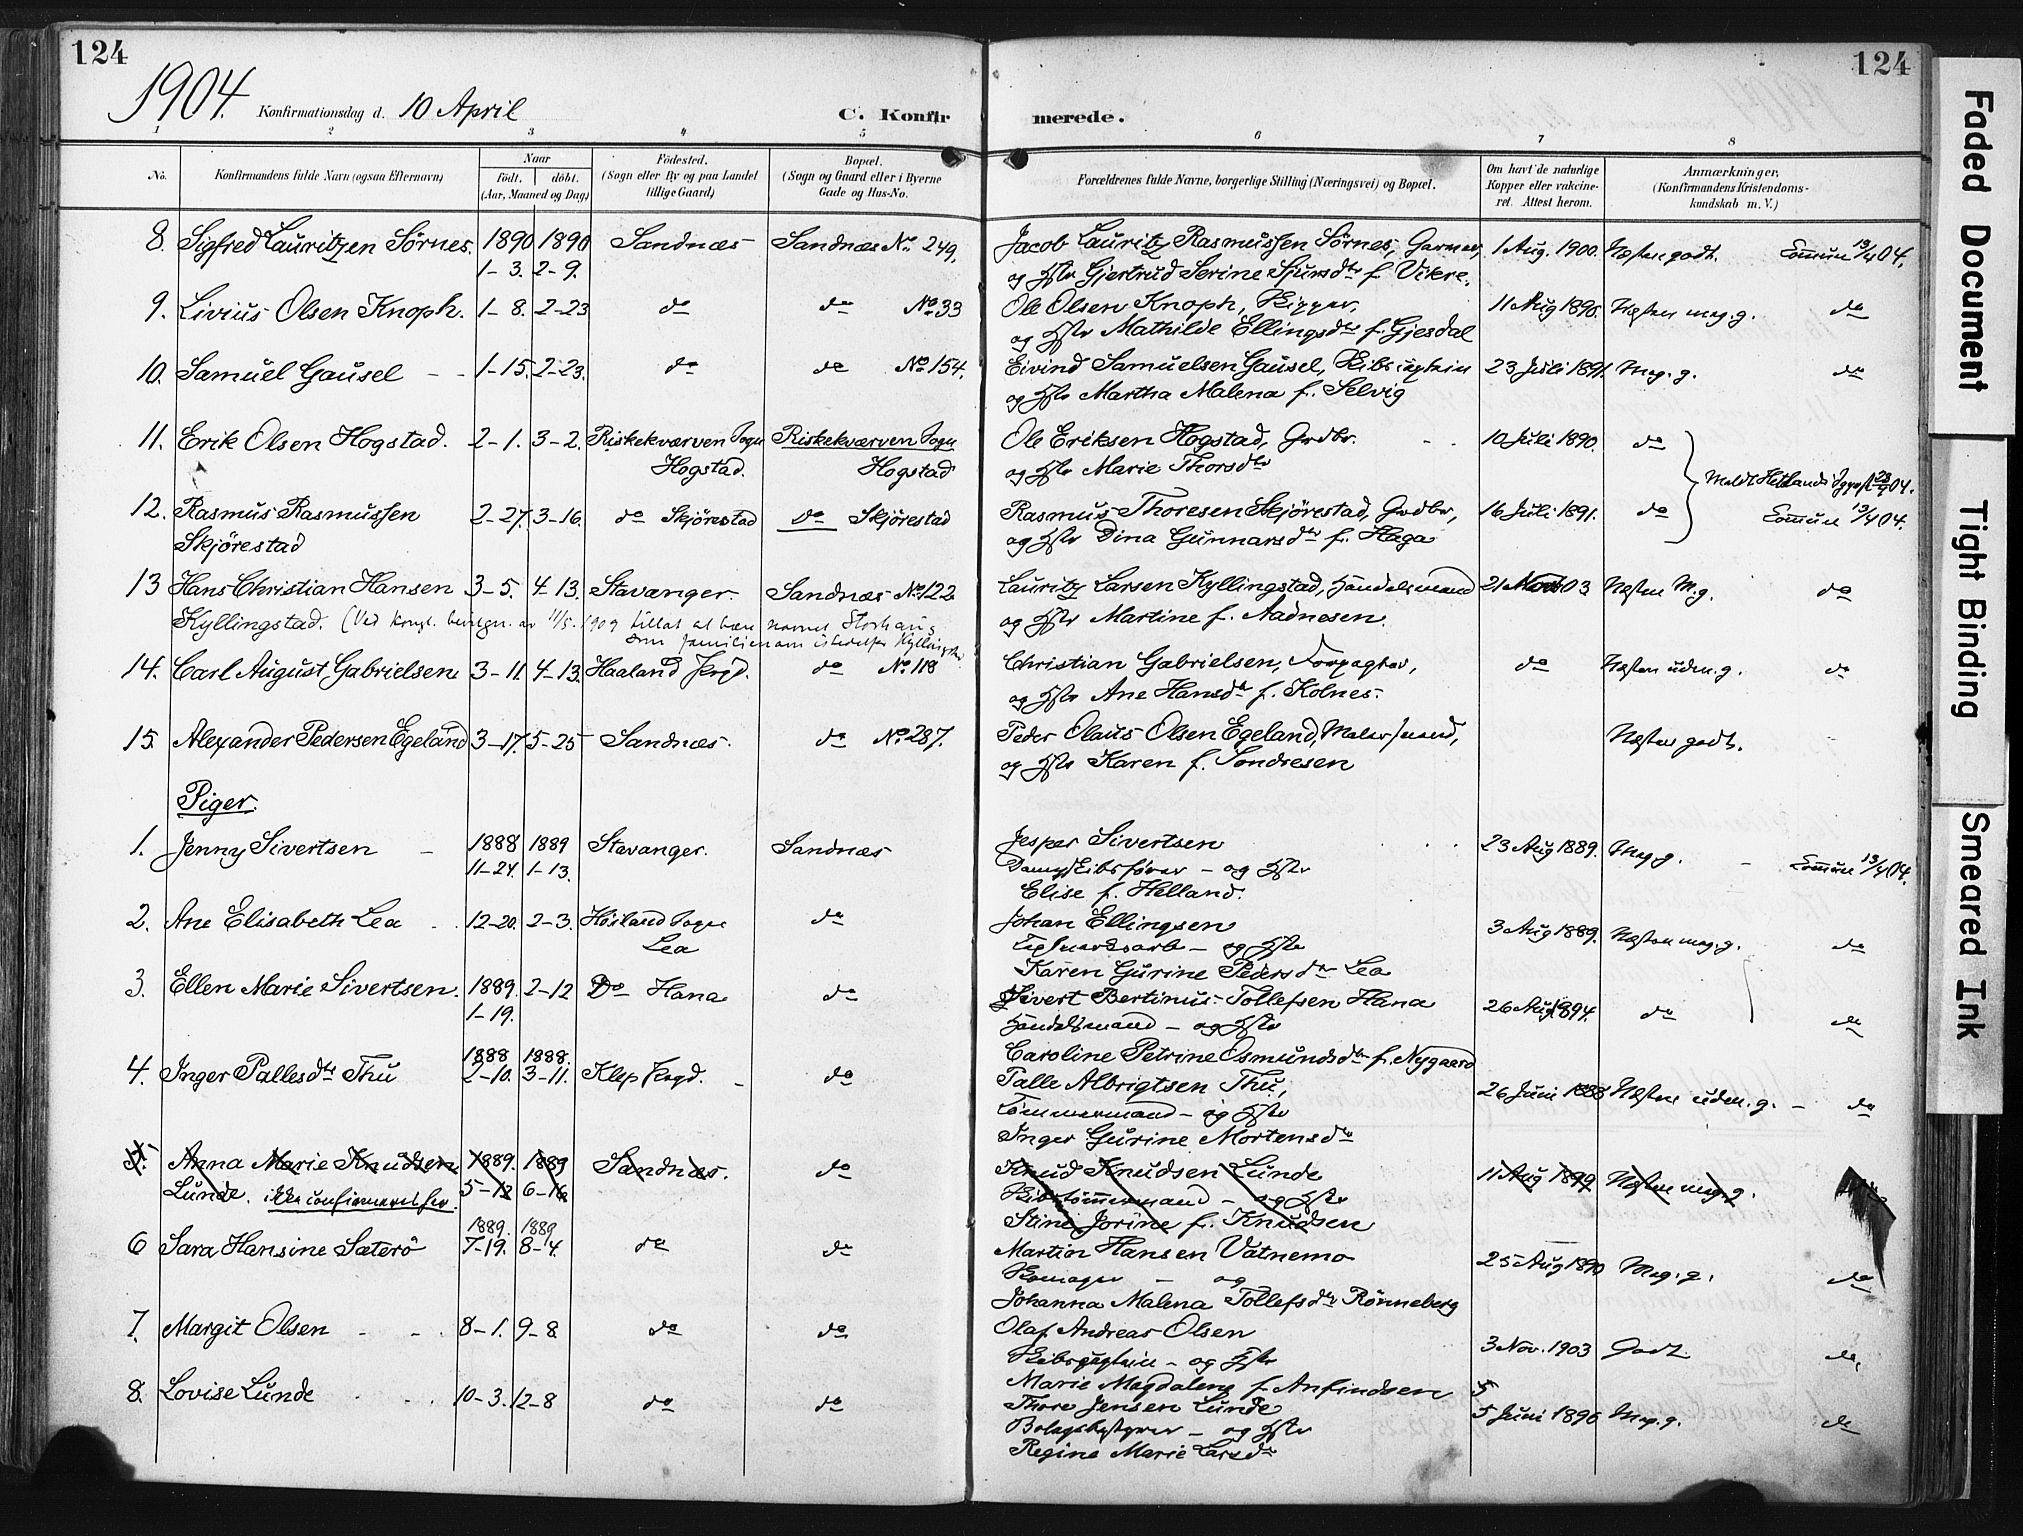 124
124
1904. Konfirmationsdag d. 10 April
C. Konfir merede.
1 2 3 4 5 6 7 8
No.
Konfirmandens fulde Navn (ogsaa Efternavn)
Naar
født. døbt.
(Aar, Maaned og Dag)
Fødested.
(Sogn eller By og paa Landet
tillige Gaard)
Bopæl.
(Sogn og Gaard eller i Byerne
Gade og Hus-No.
Forældrenes fulde Navne, borgerlige Stilling (Næringsvei) og Bopæl.
Om havt de naturlige
Kopper eller vakcine-
ret. Attest herom.
Anmærkninger,
(Konfirmandens Kristendoms-
kundskab m. V.)
8. Sigfred Lauritzen Sörnes. 1890 1890 Sandnæs Sandnæs No. 249. Jacob Lauritz Rasmussen Sörnes, Garver, 1 Aug. 1900. Næsten godt. 13/4 04.
1-3. 2-9. og Hstr Gjertrud Serine Sjursdtr f. Vikre.
9. Livius Olsen Knoph. 1-8. 2-23 do do No 33 Ole Olsen Knoph, 11 Aug 1890. Næsten meg. g. do
og Hstr Mathilde Ellingsdtr f. Gjesdal
10. Samuel Gausel 1-15. 2-23. do do No 154. Eivind Samuelsen Gausel, 23 Juli 1891. Meg. g. do
og Hstr Martha Malena f. Selvig
11. Erik Olsen Hogstad. 2-1. 3-2. Riskekværven Sogn Riskekværven Sogn Ole Eriksen Hogstad, Grdbr. 10 Juli 1890. do
Hogstad. Hogstad og Hstr Marie Thorsdtr
Meldt Hetlands 04.
12. Rasmus Rasmussen 2-27. 3-16. do Skjörestad do Skjörestad Rasmus Thoresen Skjörestad, Grdbr, 16 Juli 1891. do 13/4 04.
Skjörestad og Hstr Dina Gunnarsdtr f. Haga
13 Hans Christian Hansen 3-5. 4-13. Stavanger. Sandnæs No 122 Lauritz Larsen Kyllingstad, Handelsmand 21 03 Næsten M. g. do
Kyllingstad. (Ved Kongl. bevilgn. av 11/5. 1909 tillat at bære navnet Storhaug og Hstr Martine f. Aadnesen.
som familienavn istedetfor
14. Carl August Gabrielsen 3-11. 4-13. Haaland Prgd. do No 118 Christian Gabrielsen, Forpagter, do Næsten uden. g. do
og Hstr Ane Hansdtr f. Kolnes.
15. Alexander Pedersen Egeland 3-17. 5-25 Sandnæs. do No 287. Peder Olaus Olsen Egeland, Malersvend, Næsten godt.
og Hstr Karen f. Sondresen
Piger.
1. Jenny Sivertsen 1888 1889 Stavanger. Sandnæs Jesper Sivertsen 23 Aug 1889. Meg g. 13/4 04.
11-24. 1-13. Dampskibsfører - og Hstr
Elise f. Helland.
2. Ane Elisabeth Lea 12-20. 2-3. Höiland Sogn do Johan Ellingsen 3 Aug 1889. Næsten meg. g. do
Lea - og Hstr
Karen Gurine Pedersdtr Lea
3. Ellen Marie Sivertsen. 1889. 2-12 Do Hana do Sivert Bertinus Tollefsen Hana 26 Aug 1894. do do
1-19. Handelsmand - og Hstr
Caroline Petrine Osmundsdtr f. Nygaard
4. Inger Pallesdtr Thu 1888 1888. Klep Prgd. do Palle Albrigtsen Thu, 26 Juni 1888 Næsten uden. g. do
2-10. 3-11. Tømmermand - og Hstr
Inger Gurine Mortensdtr
5. Anna Marie Knudsen 1889. 1889 Sandnæs. do Knud Knudsen Lunde 11 Aug 1899 Næsten meg. g.
Lunde. ikke confirmeret her. 5-12 6-16 Skibstømmermand - og Hstr
Stine Jorine f. Knudsen
6 Sara Hansine Sæterö 1889. 1889 do do Martin Hansen Vatnemo 25 Aug 1890 Meg. g. do
7-19. 8-4. og
Johanna Malena Tollefsdtr Rönneberg
7. Margit Olsen 8-1. 9-8. do do Olaf Andreas Olsen 3 Nov. 1903 Godt do.
- og Hstr
Marie Magdalene f. Anfindsen
8. Lovise Lunde 10-3. 12-8 do do Thore Jensen Lunde 5 Juni 1896 Meg. g. do
Bolagsbestyrer - og Hstr
Regine Marie Larsdtr
Faded Document
Tight Binding
Smeared Ink